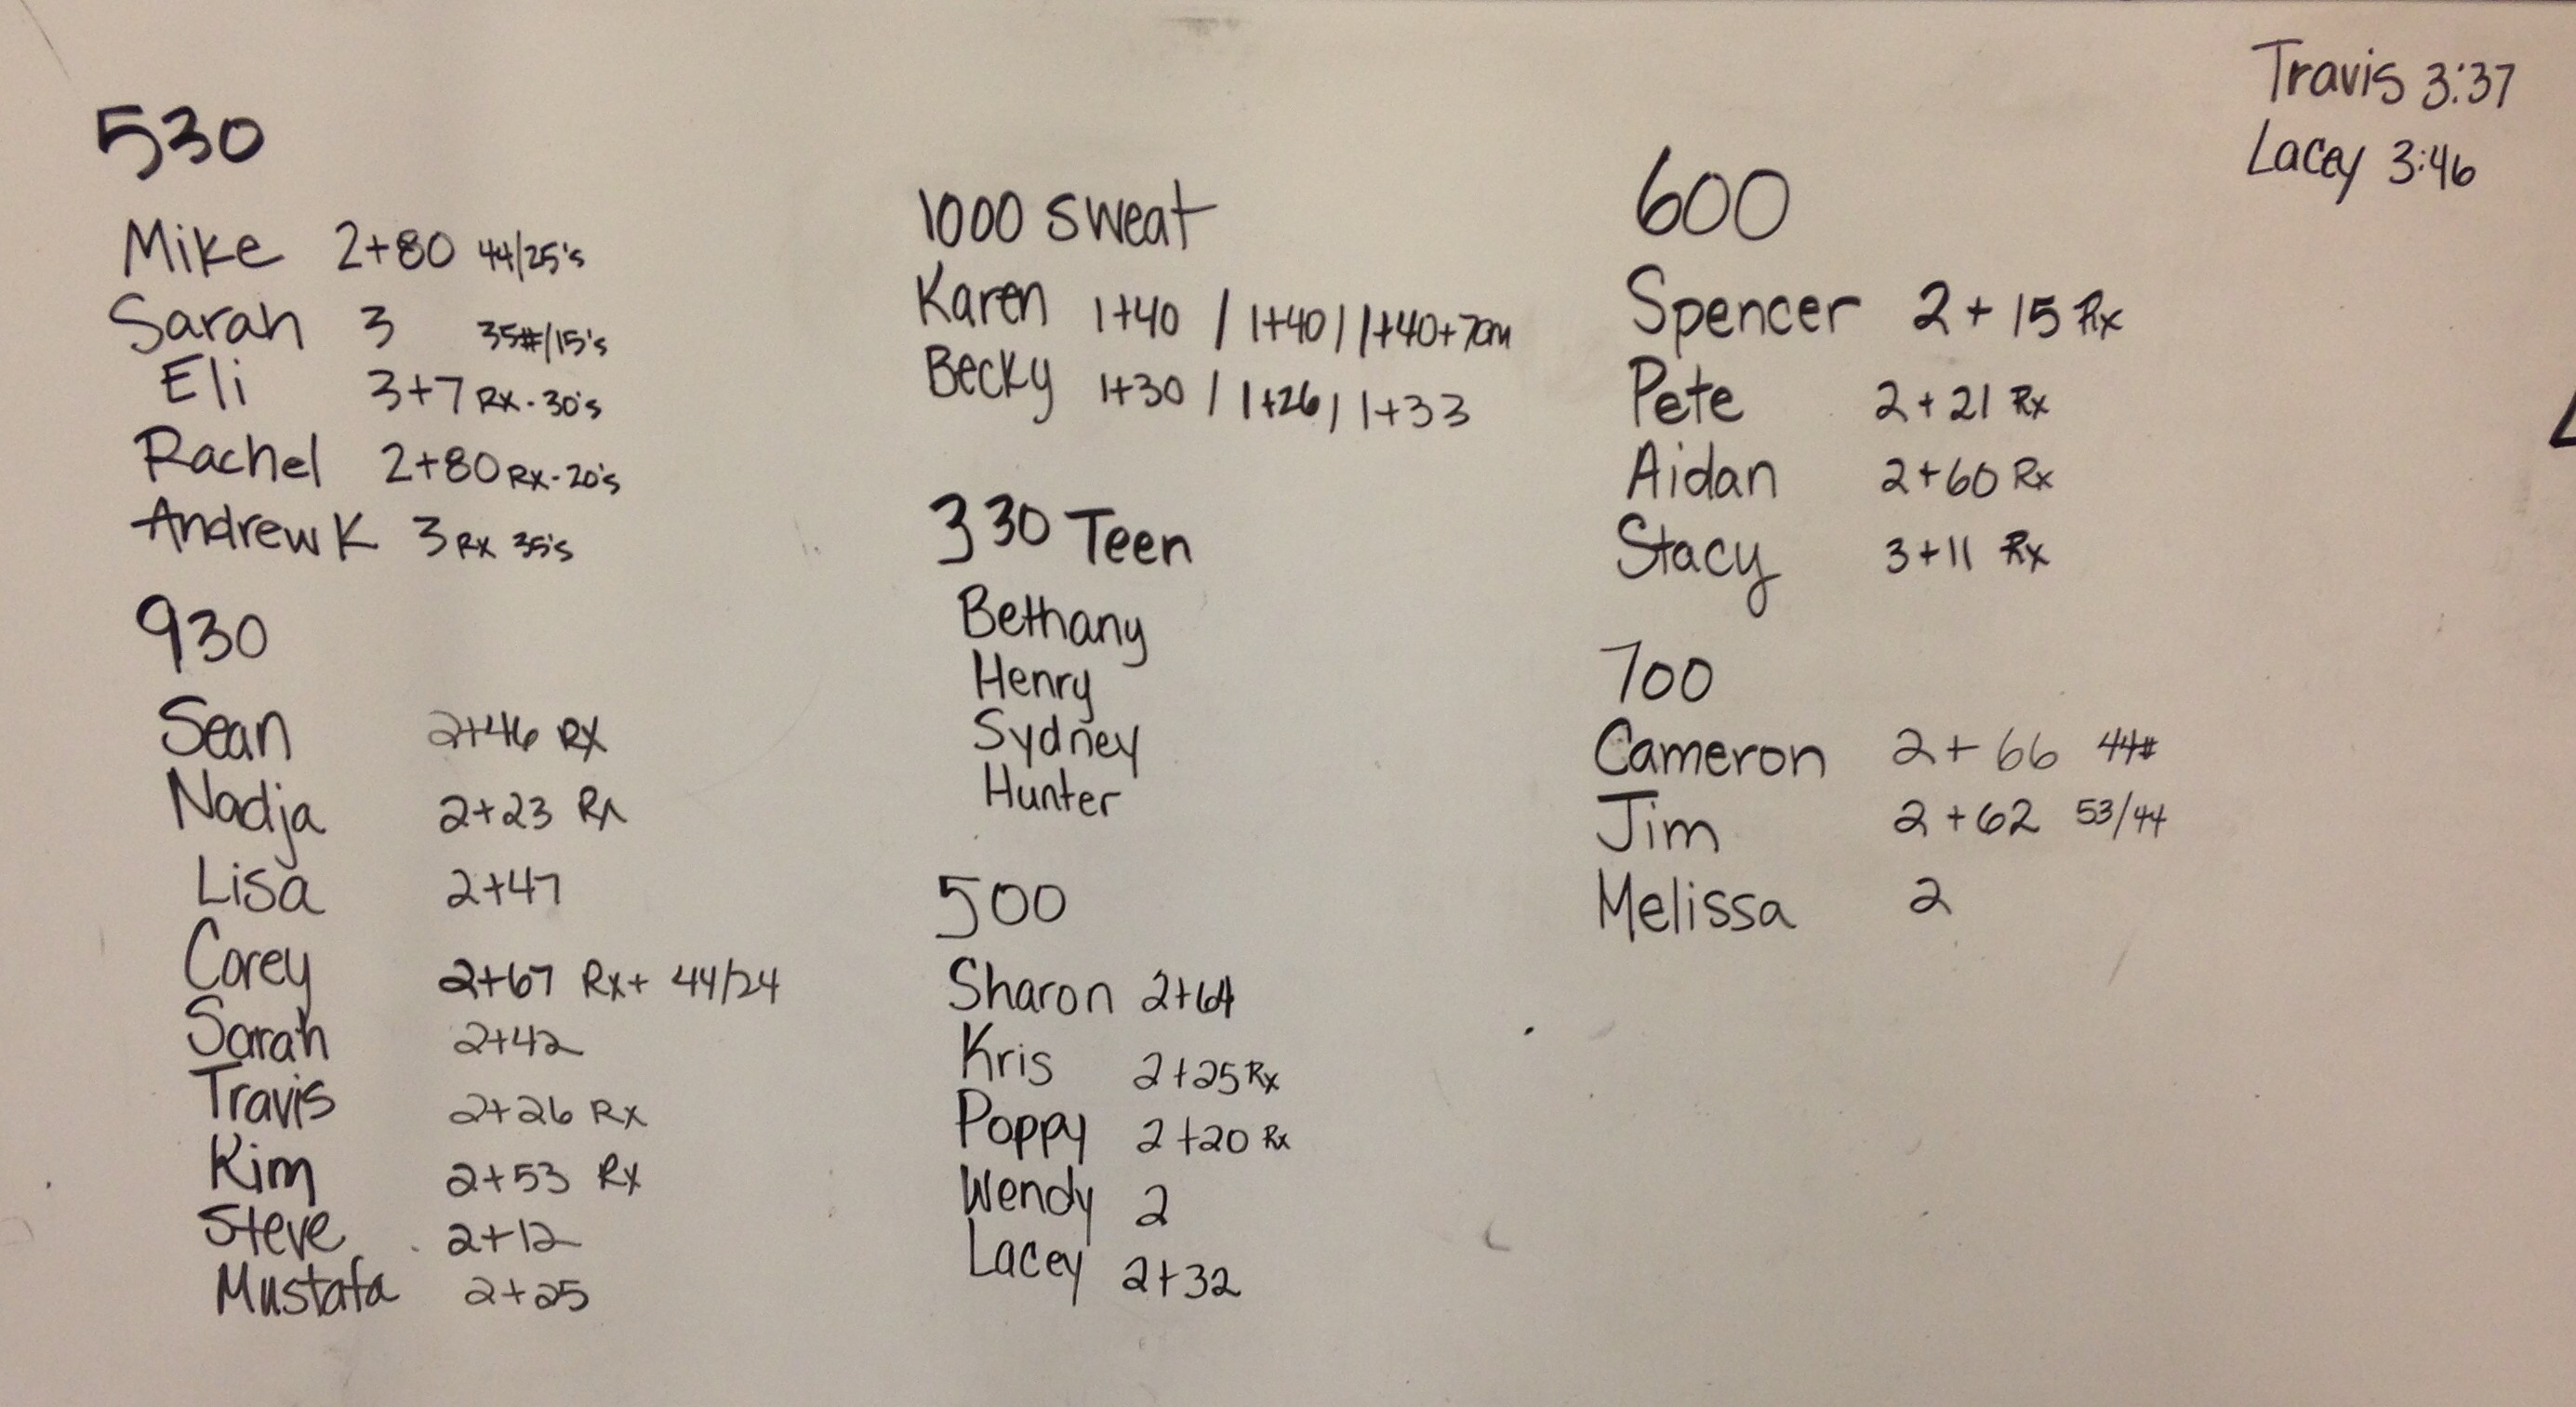 530
Mike 2+80 44/25's
Sarah 3 35#/15's
Eli 3+7 RX - 30's
Rachel 2+80 RX - 20's
Andrew K 3 RX 35's
930
Sean 2+46 RX
Nadja 2+23 Rx
Lisa 2+47
Corey 2+67 Rx+ 44/24
Sarah 2+42
Travis 2+26 Rx
Kim 2+53 Rx
Steve 2+12
Mustafa 2+25
1000 Sweat
Karen 1+40 / 1+40 / 1+40+7cm
Becky 1+30 / 1+26 / 1+33
330 Teen
Bethany
Henry
Sydney
Hunter
500
Sharon 2+64
Kris 2+25 Rx
Poppy 2+20 Rx
Wendy 2
Lacey 2+32
600
Spencer 2+15 Rx
Pete 2+21 Rx
Aidan 2+60 Rx
Stacy 3+11 Rx
700
Cameron 2+66 44#
Jim 2+62 53/44
Melissa 2
Travis 3:37
Lacey 3:46